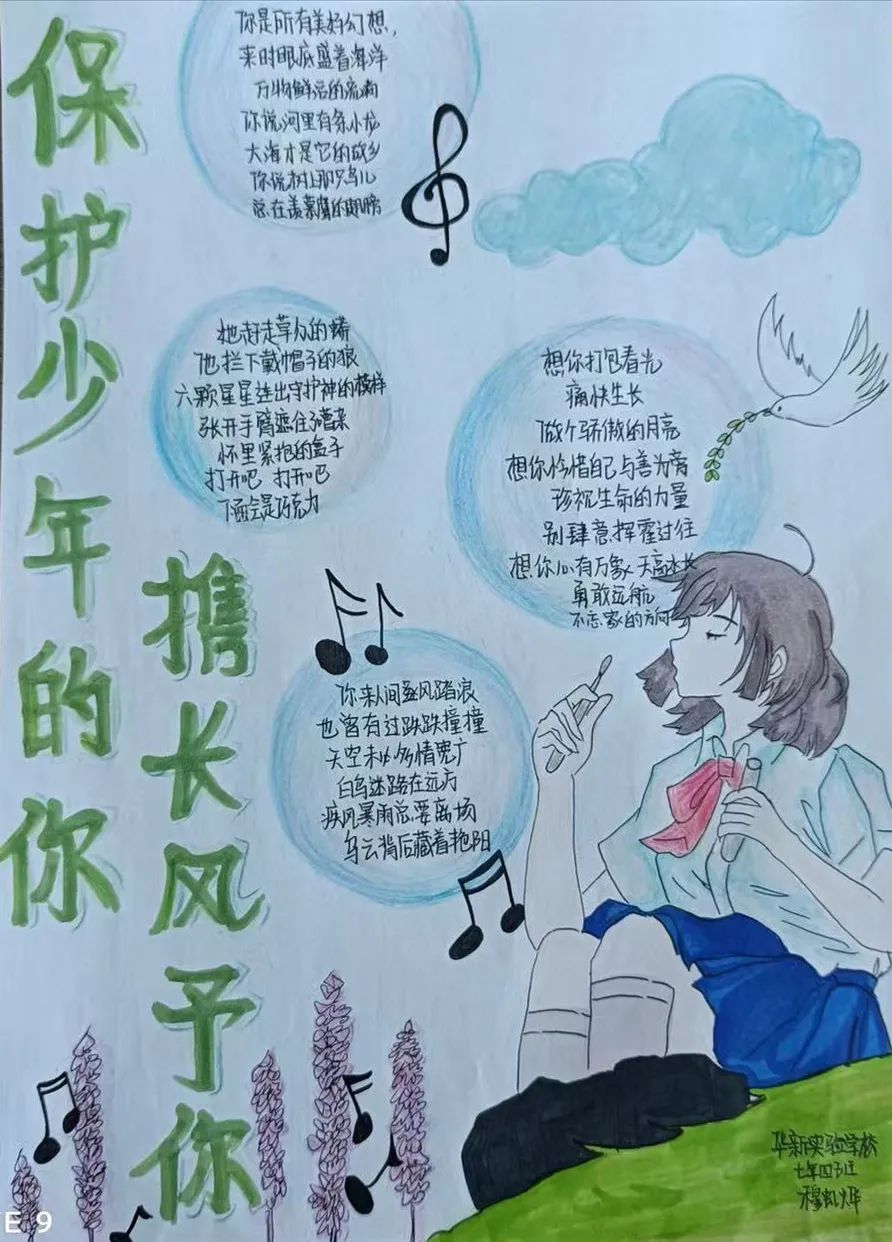 保护少年的你
携长风予你
你是所有美好幻想，
来时眼底盛着海洋
万物鲜活的流淌
你说河里有条小龙
大海才是它的故乡
你说树上那只鸟儿
总在羡慕鹰的翅膀
他赶走草丛的蟒
他拦下戴帽子的狼
六颗星星连出守护神的模样
张开手臂遮住了嘈杂
怀里紧抱的盒子
打开吧 打开吧
下面会是巧克力
想你打包春光
痛快生长
做个骄傲的月亮
想你怜惜自己与善为旁
珍视生命的力量
别肆意挥霍过往
想你心有万象天高水长
勇敢远航
不忘家的方向
你来人间逐风踏浪
也曾有过跌跌撞撞
天空未必多情宽广
白鸟迷路在远方
疾风暴雨总要离场
乌云背后藏着艳阳
华新实验学校
七年四班
穆凯烨
E 9